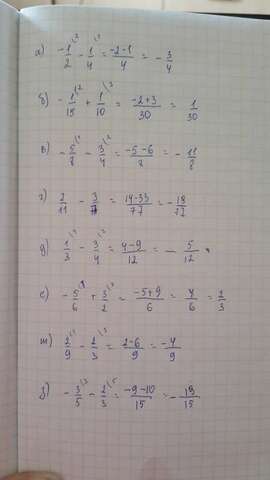 а) -1/2\² - 1/4\¹ = -2-1/4 = -3/4
б) -1/15\² + 1/10\³ = -2+3/30 = 1/30
в) -5/8\¹ - 3/4\² = -5-6/8 = -11/8
г) 2/11 - 3/7 = 14-33/77 = -18/77
д) 1/3\⁴ - 3/4\³ = 4-9/12 = -5/12
е) -5/6 + 3/2\³ = -5+9/6 = 4/6 = 2/3
ж) 2/9\¹ - 2/3\³ = 2-6/9 = -4/9
з) -3/5\³ - 2/3\⁵ = -9-10/15 = -19/15